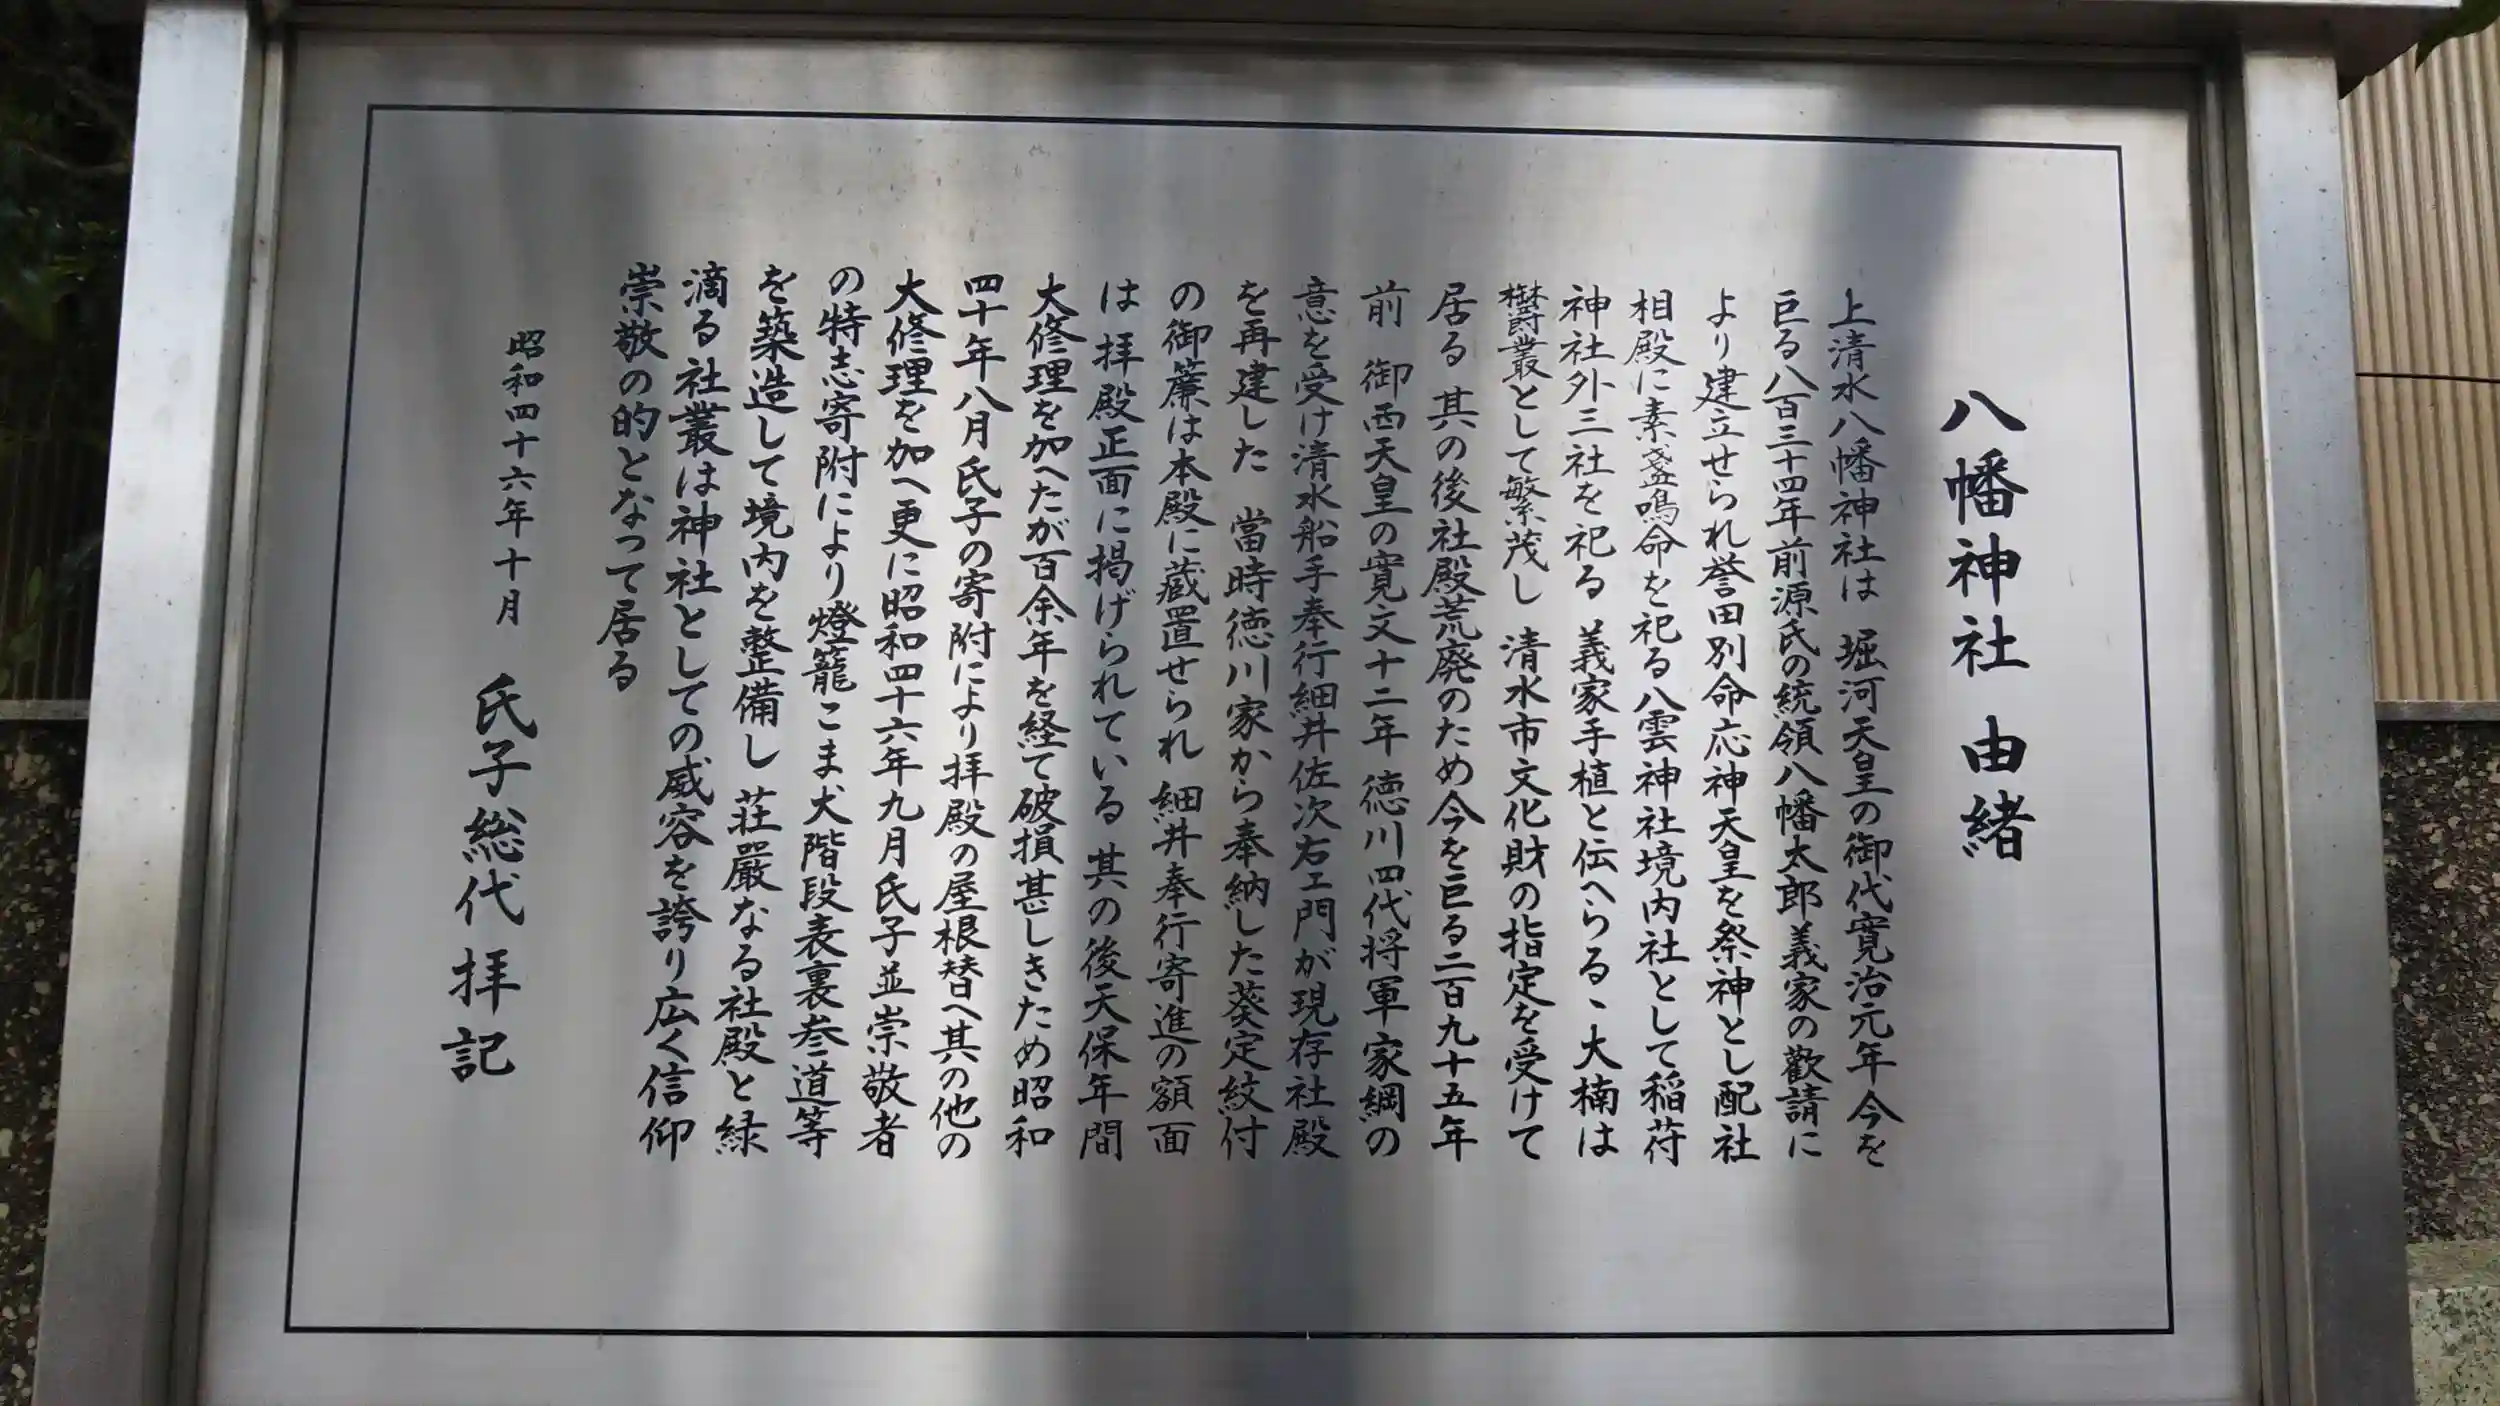 八幡神社 由緒
上清水八幡神社は 堀河天皇の御代寛治元年今を
巨る八百三十四年前源氏の統領八幡太郎義家の歡請に
より建立せられ誉田別命応神天皇を祭神とし配社
相殿に素盞鳴命を祀る八雲神社境内社として稲荷
神社外三社を祀る 義家手植と伝へらるゝ大楠は
欝叢として繁茂し 清水市文化財の指定を受けて
居る 其の後社殿荒廃のため今を巨る二百九十五年
前 御西天皇の寛文十二年 徳川四代将軍家綱の
意を受け清水船手奉行細井佐次右ェ門が現存社殿
を再建した 當時徳川家から奉納した葵定紋付
の御簾は本殿に蔵置せられ 細井奉行寄進の額面
は 拝殿正面に掲げられている 其の後天保年間
大修理を加へたが百余年を経て破損甚しきため昭和
四十年八月氏子の寄附により拝殿の屋根替へ其の他の
大修理を加へ更に昭和四十六年九月氏子並崇敬者
の特志寄附により燈籠こま犬階段表裏参道等
を築造して境内を整備し 荘嚴なる社殿と緑
滴る社叢は神社としての威容を誇り広く信仰
崇敬の的となって居る
昭和四十六年十月 氏子総代 拝記